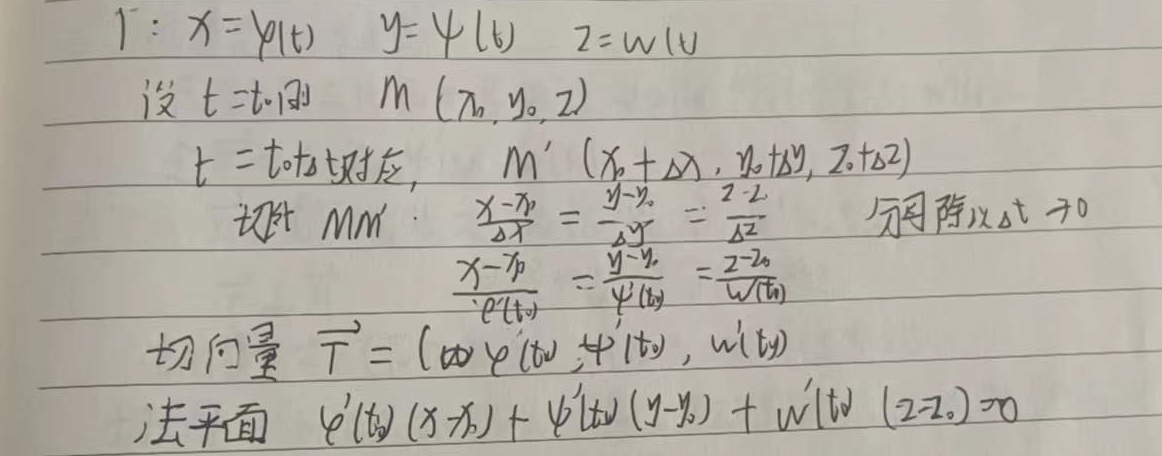 Γ: x=φ(t) y=ψ(t) z=w(t)
设 t=t₀时 M (x₀, y₀, z)
t=t₀+Δt对应, M′ (x₀+Δx, y₀+Δy, z₀+Δz)
MM′: (x-x₀)/Δx = (y-y₀)/Δy = (z-z₀)/Δz 分母除以Δt→0
(x-x₀)/φ′(t₀) = (y-y₀)/ψ′(t₀) = (z-z₀)/w′(t₀)
切向量 T⃗ = (φ′(t₀), ψ′(t₀), w′(t₀))
法平面 φ′(t₀)(x-x₀)+ψ′(t₀)(y-y₀)+w′(t₀)(z-z₀)=0